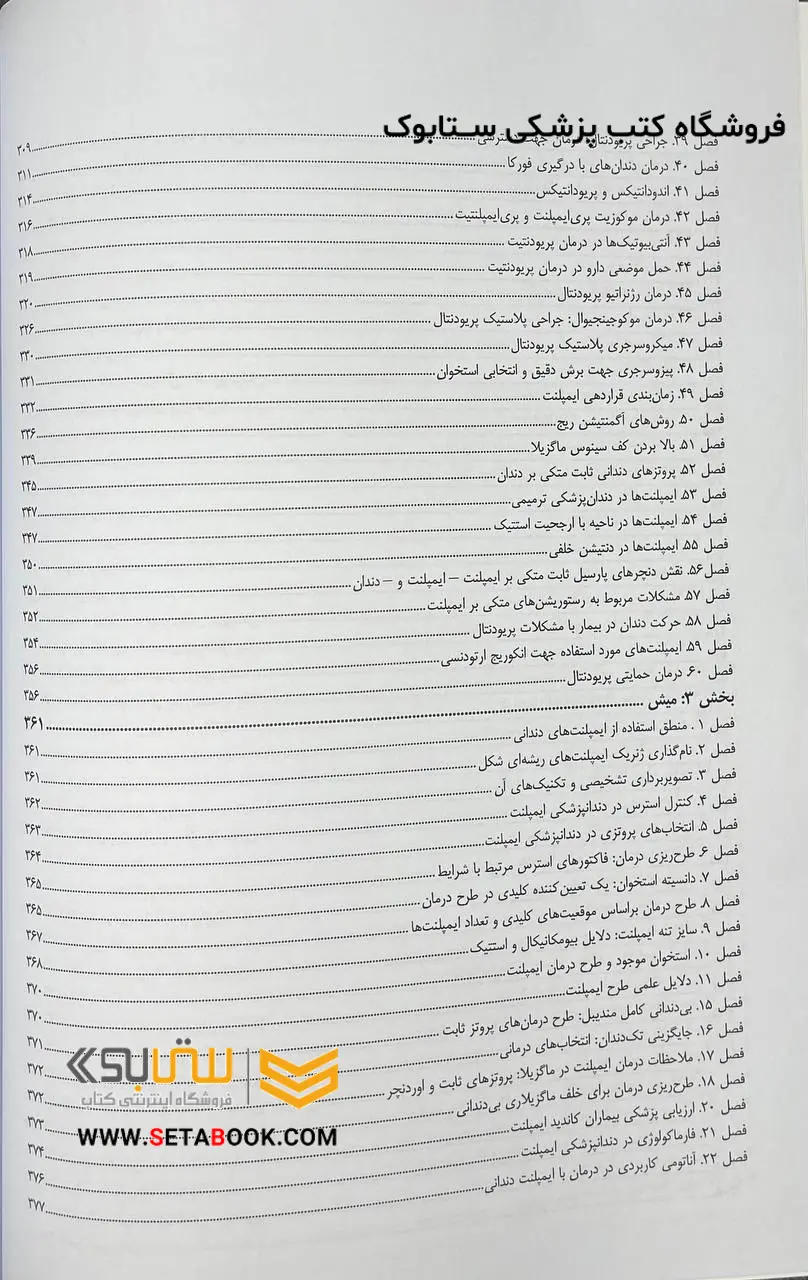 فروشگاه کتب پزشکی ستابوک
فصل ۳۹. جراحی پریودنتال: درمان جهت دسترسی ۳۰۹
فصل ۴۰. درمان دندان‌های با درگیری فورکا ۳۱۱
فصل ۴۱. اندودانتیکس و پریودانتیکس ۳۱۴
فصل ۴۲. درمان موکوزیت پری‌ایمپلنت و پری‌ایمپلنتیت ۳۱۶
فصل ۴۳. آنتی‌بیوتیک‌ها در درمان پریودنتیت ۳۱۸
فصل ۴۴. حمل موضعی دارو در درمان پریودنتیت ۳۱۹
فصل ۴۵. درمان رژنراتیو پریودنتال ۳۲۰
فصل ۴۶. درمان موکوجینجیوال: جراحی پلاستیک پریودنتال ۳۲۶
فصل ۴۷. میکروسرجری پلاستیک پریودنتال ۳۳۰
فصل ۴۸. پیزوسرجری جهت برش دقیق و انتخابی استخوان ۳۳۱
فصل ۴۹. زمان‌بندی قراردهی ایمپلنت ۳۳۲
فصل ۵۰. روش‌های آگمنتیشن ریج ۳۳۶
فصل ۵۱. بالا بردن کف سینوس ماگزیلا ۳۳۹
فصل ۵۲. پروتزهای دندانی ثابت متکی بر دندان ۳۴۵
فصل ۵۳. ایمپلنت‌ها در دندان‌پزشکی ترمیمی ۳۴۷
فصل ۵۴. ایمپلنت‌ها در ناحیه با ارجحیت استتیک ۳۴۷
فصل ۵۵. ایمپلنت‌ها در دنتیشن خلفی ۳۵۰
فصل۵۶. نقش دنچرهای پارسیل ثابت متکی بر ایمپلنت – ایمپلنت و –دندان ۳۵۱
فصل ۵۷. مشکلات مربوط به رستوریشن‌های متکی بر ایمپلنت ۳۵۲
فصل ۵۸. حرکت دندان در بیمار با مشکلات پریودنتال ۳۵۴
فصل ۵۹. ایمپلنت‌های مورد استفاده جهت انکوریج ارتودنسی ۳۵۶
فصل ۶۰. درمان حمایتی پریودنتال ۳۵۶
بخش ۳: میش ۳۶۱
فصل ۱ . منطق استفاده از ایمپلنت‌های دندانی ۳۶۱
فصل ۲. نام‌گذاری ژنریک ایمپلنت‌های ریشه‌ای شکل ۳۶۱
فصل ۳. تصویربرداری تشخیصی و تکنیک‌های آن ۳۶۲
فصل ۴. کنترل استرس در دندانپزشکی ایمپلنت ۳۶۳
فصل ۵. انتخاب‌های پروتزی در دندانپزشکی ایمپلنت ۳۶۴
فصل ۶. طرح‌ریزی درمان: فاکتورهای استرس مرتبط با شرایط ۳۶۵
فصل ۷. دانسیته استخوان: یک تعیین‌کننده کلیدی در طرح درمان ۳۶۵
فصل ۸. طرح درمان براساس موقعیت‌های کلیدی و تعداد ایمپلنت‌ها ۳۶۷
فصل ۹. سایز تنه ایمپلنت: دلایل بیومکانیکال و استتیک ۳۶۸
فصل ۱۰. استخوان موجود و طرح درمان ایمپلنت ۳۷۰
فصل ۱۱. دلایل علمی طرح ایمپلنت ۳۷۰
فصل ۱۵. بی‌دندانی کامل مندیبل: طرح درمان‌های پروتز ثابت ۳۷۱
فصل ۱۶. جایگزینی تک‌دندان: انتخاب‌های درمانی ۳۷۲
فصل ۱۷. ملاحظات درمان ایمپلنت در ماگزیلا: پروتزهای ثابت و اوردنچر ۳۷۲
فصل ۱۸. طرح‌ریزی درمان برای خلف ماگزیلاری بی‌دندانی ۳۷۳
فصل ۲۰. ارزیابی پزشکی بیماران کاندید ایمپلنت ۳۷۴
فصل ۲۱. فارماکولوژی در دندانپزشکی ایمپلنت ۳۷۶
فصل ۲۲. آناتومی کاربردی در درمان با ایمپلنت دندانی ۳۷۷
ستابوک
فروشگاه اینترنتی کتاب
WWW.SETABOOK.COM